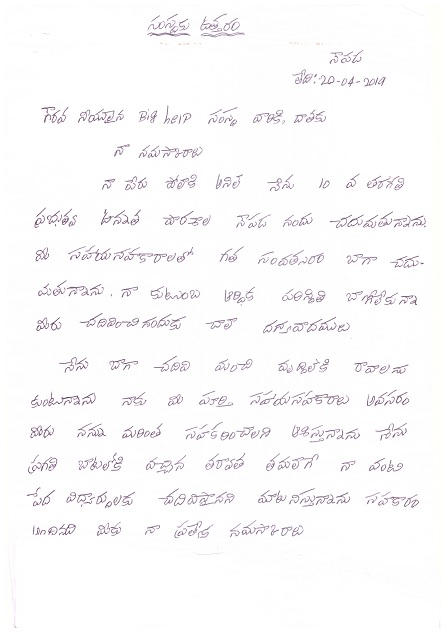 సంస్థకు ఉత్తరం
నౌపడ
తేది: 20-04-2019
గౌరవ నీయులైన Big help సంస్థ వారికి, దాతకు
నా నమస్కారాలు
నా పేరు పోలాకి అనిల్ నేను 10 వ తరగతి
ప్రభుత్వ ఉన్నత పాఠశాల నౌపడ నందు చదువుతున్నాను.
మీ సహాయసహకారాలతో గత సంవత్సరం బాగా చదు-
వుతున్నాను. నా కుటుంబ ఆర్థిక పరిస్థితి బాగోలేకున్నా
మీరు చదివించినందుకు చాలా ధన్యవాదములు
నేను బాగా చదివి మంచి వృద్ధిలోకి రావాలను
కుంటున్నాను నాకు మీ పూర్తి సహాయసహకారాలు అవసరం
మీరు నన్ను మరింత సహకరించాలని ఆశిస్తున్నాను నేను
ప్రగతి బాటలోకి వచ్చిన తరువాత తమలాగే నా వంటి
పేద విద్యార్థులకు చదివిస్తానని మాటనిస్తున్నాను సహకారం
అందించిన మీకు నా ప్రత్యేక నమస్కారాలు